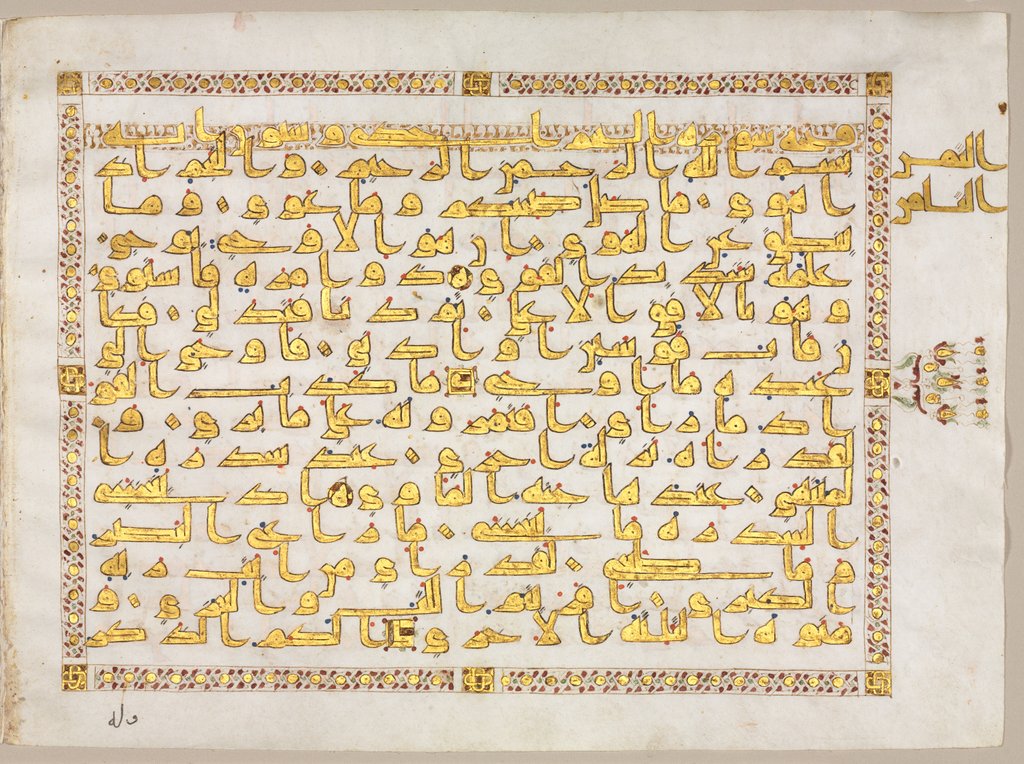 سوره النجم وستون ايه
بسم الله الرحمن الرحيم والنجم اذ
ا هوى ما ضل صحبكم وما غوى وما
ينطق عن الهوى ان هو الا وحى يوحى
علمه شديد القوى ذو مره فاستوى
وهو بالافق الاعلى ثم دنا فتدلى فكا
ن قاب قوسين او ادنى فاوحى الى
عبده ما اوحى ما كذب الفو
اد ما راى افتمرونه على ما يرى و
لقد راه نزله اخرى عند سدره ا
لمنتهى عندها جنه الماوى اذ يغشى
السدره ما يغشى ما زاغ البصر
وما طغى لقد راى من ايت ربه
الكبرى افريتم اللت والعزى و
منوه الثلثه الاخرى الكم الذكر